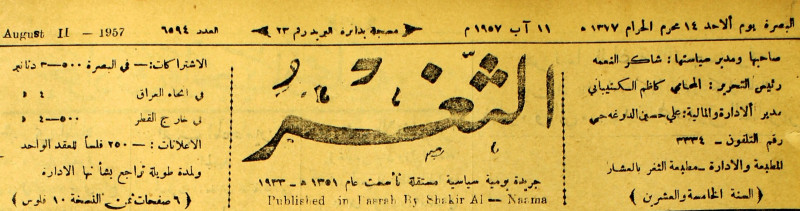 البصرة يوم الاحد ١٤ محرم الحرام ١٣٧٧ ه
١١ آب ١٩٥٧ م
مسجلة بدائرة البريد رقم ٢٣
العدد ٦٥٩٤
August 11 - 1957
صاحبها ومدير سياستها : شاكر النعمه
رئيس التحرير : المحامي كاظم الكشيباني
مدير الادارة والمالية : علي حسين الدوغه جي
رقم التلفون — ٣٣٣٤
المطبعة والادارة — مطبعة الثغر بالعشار
( السنة الخامسة والعشرين )
الثغر
جريدة يومية سياسية مستقلة تأسست عام ١٣٥١ ه — ١٩٣٣
Published in Basrah By Shakir Al - Naama
الاشتراكات :— في البصرة ٥٠٠—٣ دنانير
في انحاء العراق ٤ »
في خارج القطر ٥٠٠—٤ »
الاعلانات :— ٢٥٠ فلساً للعقد الواحد
ولمدة طويلة تراجع بشأنها الادارة
( ٦ صفحات ثمن النسخة ١٠ فلوس )